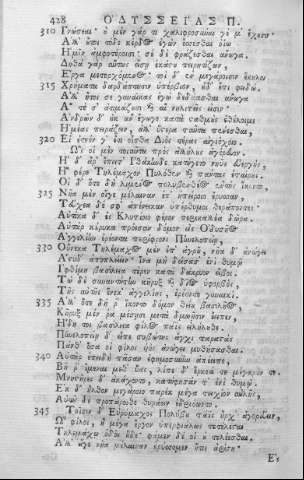 428 Ο᾽ΔΥΣΣΕΙΑΣ Π.
310 Γνώσεαι· οὐ μὲν γάρ τι χαλιφροσύναι γέ μ᾽ ἔχουσιν
Ἀλλ᾽ οὔτοι τόδε κέρδος ἐγὼν ἔσσεσθαι ὀΐω
Ἡμῖν ἀμφοτέροισι· σὲ δὲ φράζεσθαι ἄνωγα.
Δηθὰ γὰρ αὔτως εἴσῃ ἑκάστου πειρητίζων,
Ἔργα μετερχόμενος· τοὶ δ᾽ ἐν μεγάροισιν ἕκηλοι
315 Χρήματα δαρδάπτουσιν ὑπέρβιον, οὐδ᾽ ἔτι φειδώ.
Ἀλλ᾽ ἤτοι σε γυναῖκας ἐγὼ δεδάασθαι ἄνωγα
Αἵ τέ σ᾽ ἀτιμάζουσι καὶ αἳ νηλιτεῖς εἰσίν·
Ἀνδρῶν δ᾽ οὐκ ἂν ἔγωγε κατὰ σταθμοὺς ἐθέλοιμι
Ἡμέας πειράζειν, ἀλλ᾽ ὕστερα ταῦτα πένεσθαι,
320 Εἰ ἐτεόν γ᾽ ἔτι οἶσθα Διὸς τέρας αἰγιόχοιο.
Ὣς οἱ μὲν τοιαῦτα πρὸς ἀλλήλους ἀγόρευον.
Ἡ δ᾽ ἄρ᾽ ἔπειτ᾽ Ἰθάκηνδε κατήγετο νηῦς εὐεργὴς,
Ἣ φέρε Τηλέμαχον Πυλόθεν καὶ πάντας ἑταίρους.
Οἱ δ᾽ ὅτε δὴ λιμένος πολυβενθέος ἐντὸς ἵκοντο,
325 Νῆα μὲν οἵγε μέλαιναν ἐπ᾽ ἠπείροιο ἔρυσσαν·
Τεύχεα δέ σφ᾽ ἀπένεικαν ὑπέρθυμοι θεράποντες·
Αὐτίκα δ᾽ ἐς Κλυτίοιο φέρον περικαλλέα δῶρα.
Αὐτὰρ κήρυκα πρόεσαν δόμον εἰς Ὀδυσῆος
Ἀγγελίην ἐρέοντα περίφρονι Πηνελοπείῃ,
330 Οὕνεκα Τηλέμαχος μὲν ἐπ᾽ ἀγροῦ, νῆα δ᾽ ἀνώγει
Ἄστυδ᾽ ἀποπλείειν· ἵνα μὴ δείσασ᾽ ἐνὶ θυμῷ
Ἰφθίμη βασίλεια τέρεν κατὰ δάκρυον εἴβοι.
Τὼ δὲ συναντήτην κῆρυξ καὶ δῖος ὑφορβὸς,
Τῆς αὐτῆς ἕνεκ᾽ ἀγγελίης, ἐρέοντε γυναικί.
335 Ἀλλ᾽ ὅτε δή ῥ᾽ ἵκοντο δόμον θείου βασιλῆος,
Κῆρυξ μέν ῥα μέσῃσι μετὰ δμωῇσιν ἔειπεν,
Ἤδη τοι βασίλεια φίλος παῖς εἰλήλουθε.
Πηνελοπείῃ δ᾽ εἶπε συβώτης ἄγχι παραστὰς
Πάνθ᾽ ὅσα οἱ φίλος υἱὸς ἀνώγει μυθήσασθαι.
340 Αὐτὰρ ἐπειδὴ πᾶσαν ἐφημοσύνην ἀπέειπε,
Βῆ ῥ᾽ ἴμεναι μεθ᾽ ὕας, λίπε δ᾽ ἕρκεά τε μέγαρόν τε.
Μνηστῆρες δ᾽ ἀκάχοντο, κατήφησάν τ᾽ ἐνὶ θυμῷ.
Ἐκ δ᾽ ἦλθον μεγάροιο παρὲκ μέγα τειχίον αὐλῆς,
Αὐτοῦ δὲ προπάροιθε θυράων ἑδριόωντο.
345 Τοῖσιν δ᾽ Εὐρύμαχος Πολύβου παῖς ἦρχ᾽ ἀγορεύειν,
Ὦ φίλοι, ἦ μέγα ἔργον ὑπερφιάλως τετέλεσται
Τηλεμάχῳ ὁδὸς ἥδε· φάμεν δέ οἱ οὐ τελέεσθαι.
Ἀλλ᾽ ἄγε νῆα μέλαιναν ἐρύσσομεν ἥτις ἀρίστη·